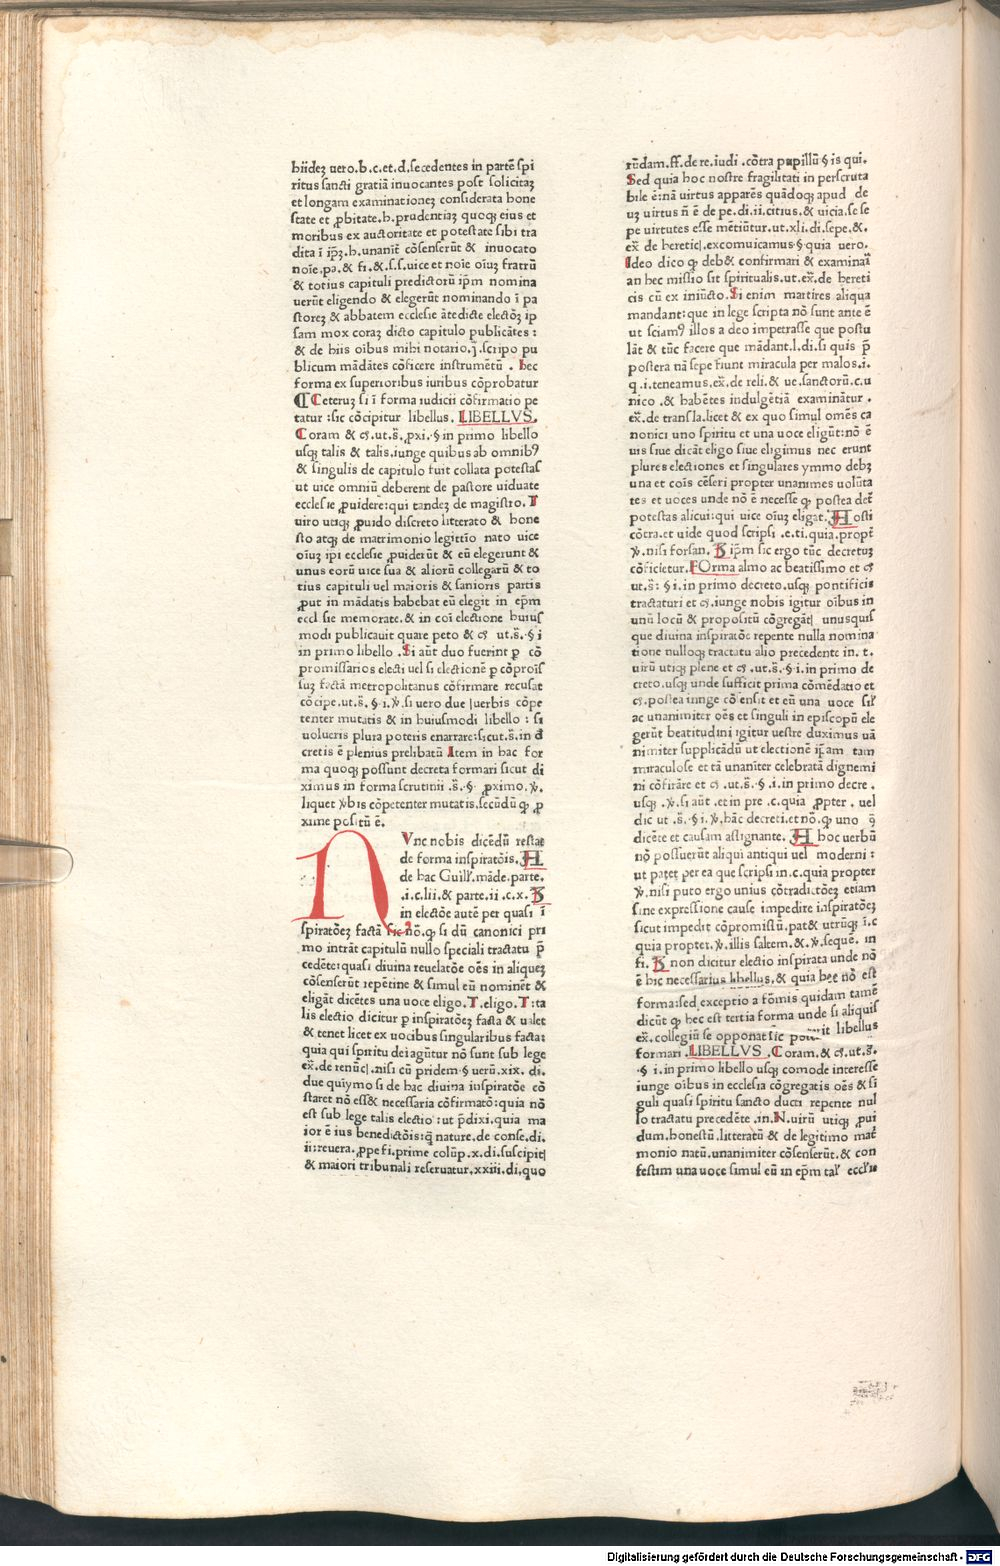 hiidez uero.b.c.et.d.secedentes in partē spi
ritus sancti gratiā inuocantes post solicitaz
et longam examinationez considerata hone
state et ꝓbitate.b.prudentiaz quoqꝫ eius et
moribus ex auctoritate et potestate sibi tra
dita ī ip̄ꝫ.b.unanīt cōsenserūt & inuocato
noīe.pa.& fi.& s.s.uice et noīe oīuꝫ fratrū
& totius capituli predictorū ip̄m nomina
uerūt eligendo & elegerūt nominando ī pa
storeꝫ & abbatem ecclesie ātedicte electōꝫ ip
sam mox coraꝫ dicto capitulo publicātes:
& de hiis oībus mihi notario.ꝗ.scripo pu
blicum mādātes cōficere instrumētū . hec
forma ex superioribus iuribus cōprobatur
¶ Ceteruꝫ si ī forma iudicii cōfirmatio pe
tatur :sic cōcipitur libellus. LIBELLVS.
Coram & cꝭ.ut.s̄.ꝓxi.§ in primo libello
usqꝫ talis & talis.iunge quibus ab omnibꝰ
& singulis de capitulo fuit collata potestas
ut uice omniū deberent de pastore uiduate
ecclesie ꝓuidere:qui tandeꝫ de magistro. T
uiro utiqꝫ ꝓuido discreto litterato & hone
sto atqꝫ de matrimonio legittīo nato uice
oīuꝫ ip̄i ecclesie ꝓuiderūt & eū elegerunt &
unus eorū uice sua & aliorū collegarū & to
tius capituli uel maioris & sanioris partis
ꝓut in mādatis habebat eū elegit in ep̄m
eccl sie memorate.& in coī electione huius
modi publicauit quare peto & cꝭ ut.s̄.§ i
in primo libello .Si aūt duo fuerint ꝑ cō
promissarios electi uel si electionē ꝑ cōproīs
suꝫ factā metropolitanus cōfirmare recusat
cōcipe.ut.s̄. § i.℣.si uero due uerbis cōpe
tenter mutatis & in huiusmodi libello : si
uolueris plura poteris enarrare:sicut.s̄.in d̄
cretis ē plenius prelibatū Item in hac for
ma quoqꝫ possunt decreta formari sicut di
ximus in forma scrutinii .s̄.§ ꝓximo.℣.
liquet ℣bis cōpetenter mutatis.secūdū ꝙ ꝓ
xime positū ē.
NVnc nobis dicēdū restat
de forma inspiratōis. H
de hac Guill'.māde.parte.
.i.c.lii.& parte.ii.c.x. B
in electōe autē per quasi ī
spiratōeꝫ factā sic nō.ꝙ si dū canonici pri
mo intrāt capitulū nullo speciali tractatu p̄
cedēte:quasi diuina reuelatōe oēs in aliqueꝫ
cōsenserūt repētine & simul eū nominēt &
eligāt dicētes una uoce eligo. T.eligo. T:ta
lis electio dicitur ꝑ inspiratōeꝫ facta & ualet
& tenet licet ex uocibus singularibus facta:
quia qui spiritu dei agūtur nō sunt sub lege
ex̄.de renūc.nisi cū pridem.§ uerū.xix. di.
due quiymo si de hac diuina inspiratōe cō
staret nō ess& necessaria cōfirmatō:quia nō
est sub lege talis electio :ut p̄dixi.quia ma
ior ē ius benedictōis:q̄ nature.de conse.di.
ii:reuera.ꝓpe fi.prime colūp.x.di.suscipit
& maiori tribunali reseruatur.xxiii.di.quo
rūdam.ff.de re.iudi .cōtra pupillū § is qui.
Sed quia hoc nostre fragilitati in perscruta
bile ē:nā uirtus apparēs quādoqꝫ apud de
uꝫ uirtus n̄ ē de pe.di.ii.citius.& uicia.se se
pe uirtutes esse mētiūtur.ut.xli.di.sepe.&.
ex̄ de heretic.excomuicamus.§ quia uero.
Ideo dico ꝙ deb& confirmari & examinaī
an hec missio sit spiritualis.ut.ex̄.de hereti
cis cū ex iniūcto. Si enim martires aliqua
mandant:que in lege scripta nō sunt ante ē
ut sciamꝰ illos a deo impetrasse que postu
lāt & tūc facere que mādant.l.di.si quis p̄
postera nā sepe fiunt miracula per malos.i.
q.i.teneamus.ex̄.de reli.& ue.sanctorū.c.u
nico .& habētes indulgētiā examinātur .
ex̄.de transla.licet & ex quo simul omēs ca
nonici uno spiritu et una uoce eligūt:nō ē
uis siue dicāt eligo siue eligimus nec erunt
plures electiones et singulares ymmo debꝫ
una et coīs cēseri propter unanimes uolūta
tes et uoces unde nō ē necesse ꝙ postea det̄
potestas alicui:qui uice oīuꝫ eligat. Hosti
cōtra.et uide quod scripsi .e.ti.quia.propt̄
℣.nisi forsan. B ip̄m sic ergo tūc decretuꝫ
cōficietur. FOrma almo ac beatissimo et cꝭ
ut.s̄: § i.in primo decreto.usqꝫ pontificis
tractaturi et cꝭ.iunge nobis igitur oībus in
unū locū & propositū cōgregāt unusquis
que diuina inspiratōe repente nulla nomina
tione nulloqꝫ tractatu alio precedente in. t.
uirū utiqꝫ plene et cꝭ .ut.s̄.§ i.in primo de
creto.usqꝫ unde sufficit prima cōmēdatio et
cꝭ.postea iunge cōsensit et eū una uoce sil'
ac unanimiter oēs et singuli in episcopū ele
gerūt beatitudini igitur uestre duximus uā
nimiter supplicādū ut electionē ip̄am tam
miraculose et tā unanīter celebratā dignemi
ni cōfirāre et cꝭ .ut.s̄.§ .i.in primo decre.
usqꝫ .℣.si aūt .et in pre .c.quia ꝓpter. uel
dic ut .s̄.§ i.℣.hāc decreti.et nō.ꝙ uno ꝯ
dicēte et causam assignante. H hoc uerbū
nō possuerūt aliqui antiqui uel moderni :
ut pateꝫ per ea que scripsi in.c.quia propter
℣.nisi puto ergo unius cōtradictōeꝫ etiam
sine expressione cause impedire īspiratōeꝫ
sicut impedit cōpromissū.pat& utrūqꝫ ī.c
quia propter.℣.illis saltem.&.℣.seque. in
fi. B non dicitur electio inspirata unde nō
ē hic necessarius libellus.& quia hec nō est
forma:sed exceptio a fōmīs quidam tamē
dicūt ꝙ hec est tertia forma unde si aliquis
ex̄.collegiū se opponat sic libellus
formari .LIBELLVS .Coram.& cꝭ.ut.s̄.
.§ i.in primo libello usqꝫ comode interesse
iunge oībus in ecclesia cōgregatis oēs & si
guli quasi spiritu sancto ducti repente nul
lo tractatu precedēte.in.N.uirū utiqꝫ ꝓui
dum.honestū.litteratū & de legitimo mat̄
monio natū.unanimiter cōsenserūt.& con
festim una uoce simul eū in ep̄m tal' eccl'ie
Digitalisierung gefördert durch die Deutsche Forschungsgemeinschaft - DFG